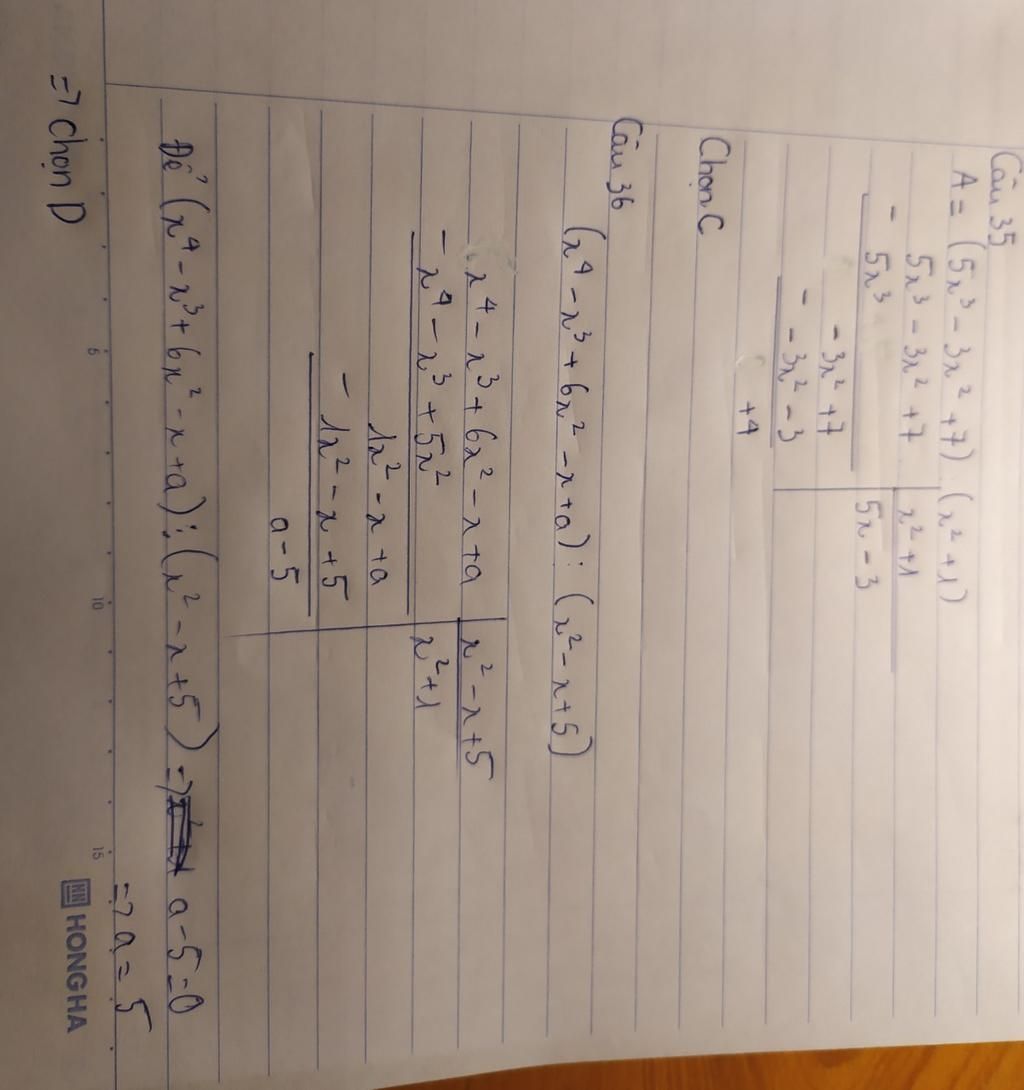 Câu 35
A = (5x³ - 3x² + 7) . (x² + 1)
5x³ - 3x² + 7 | x² + 1
- 5x³ | 5x - 3
- 3x² + 7
- - 3x² - 3
+4
Chọn C
Câu 36
(x⁴ - x³ + 6x² - x + a) : (x² - x + 5)
x⁴ - x³ + 6x² - x + a | x² - x + 5
- x⁴ - x³ + 5x² | x² + 1
1x² - x + a
- 1x² - x + 5
a - 5
Để (x⁴ - x³ + 6x² - x + a) : (x² - x + 5) => a - 5 = 0
=> a = 5
=> Chọn D
5 10 15
HONG HA